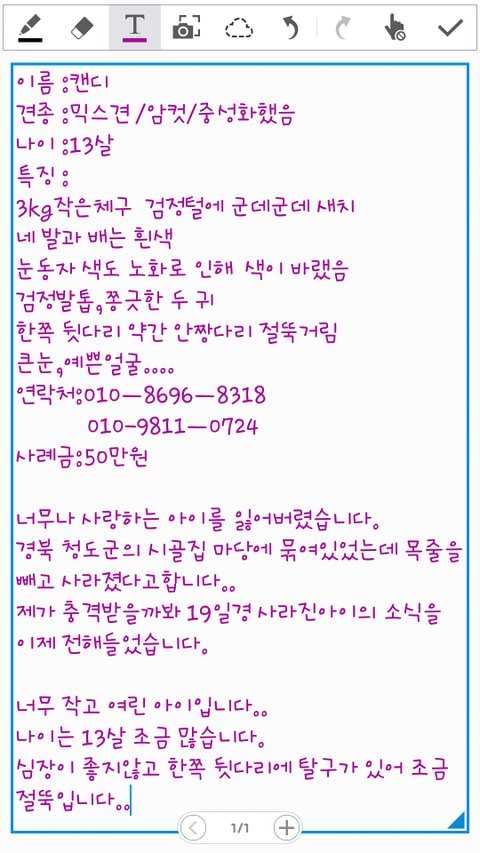 T
이름 :캔디
견종 :믹스견 /암컷/중성화했음
나이 :13살
특징 :
3kg작은체구 검정털에 군데군데 새치
네 발과 배는 흰색
눈동자 색도 노화로 인해 색이 바랬음
검정발톱,쫑긋한 두 귀
한쪽 뒷다리 약간 안짱다리 절뚝거림
큰눈,예쁜얼굴....
연락처:010-8696-8318
010-9811-0724
사례금:50만원
너무나 사랑하는 아이를 잃어버렸습니다.
경북 청도군의 시골집 마당에 묶여있었는데 목줄을
빼고 사라졌다고합니다..
제가 충격받을까봐 19일경 사라진아이의 소식을
이제 전해들었습니다.
너무 작고 여린 아이입니다..
나이는 13살 조금 많습니다.
심장이 좋지않고 한쪽 뒷다리에 탈구가 있어 조금
절뚝입니다..
1/1